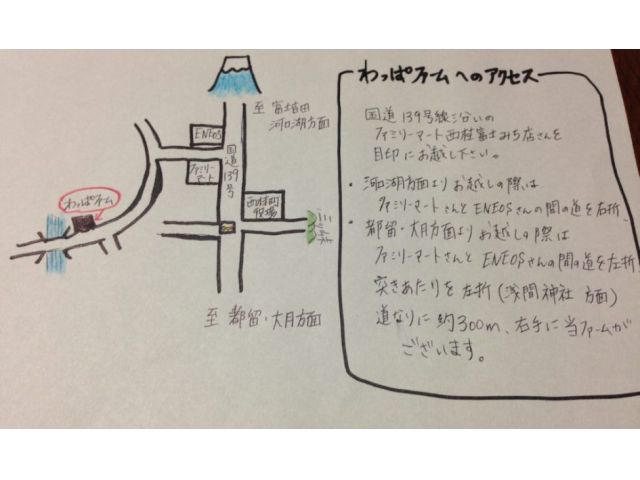 至 富士吉田
河口湖方面
ENEOS
国道139号
ファミリー
マート
わっぱファーム
西桂町
役場
三ッ峠
至 都留・大月方面
わっぱファームへのアクセス
国道139号線沿いの
ファミリーマート西桂富士みち店さんを
目印にお越し下さい。
・河口湖方面よりお越しの際は
ファミリーマートさんとENEOSさんの間の道を右折
・都留・大月方面よりお越しの際は
ファミリーマートさんとENEOSさんの間の道を左折
突きあたりを左折(浅間神社 方面)
道なりに約300m、右手に当ファームが
ございます。